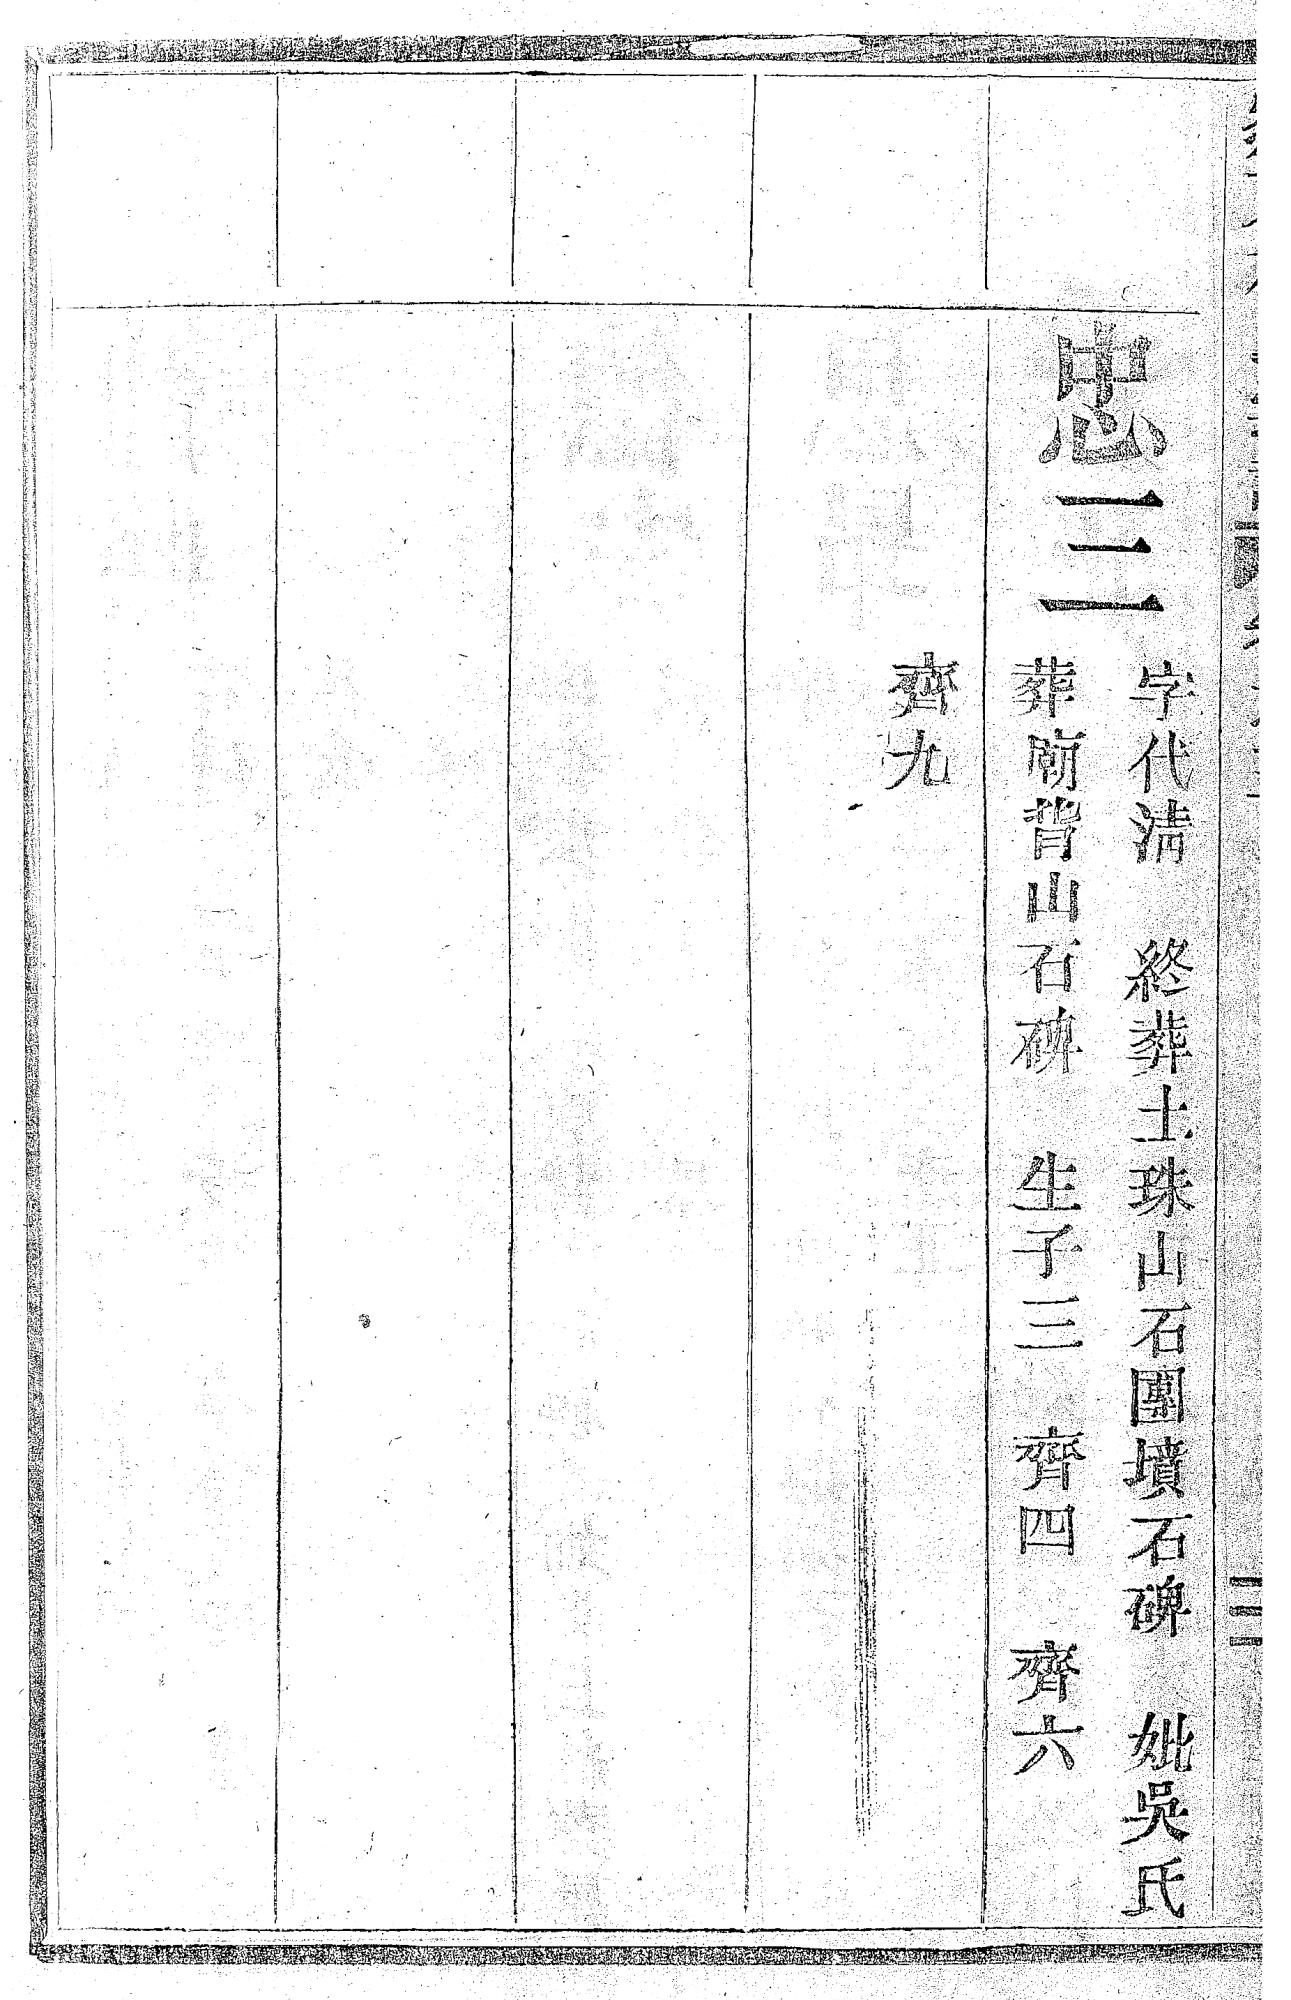 忠三
字代淸 終葬土珠山石圍墳石碑 妣吳氏
葬廟背山石碑 生子三 齊四 齊六
齊九
三